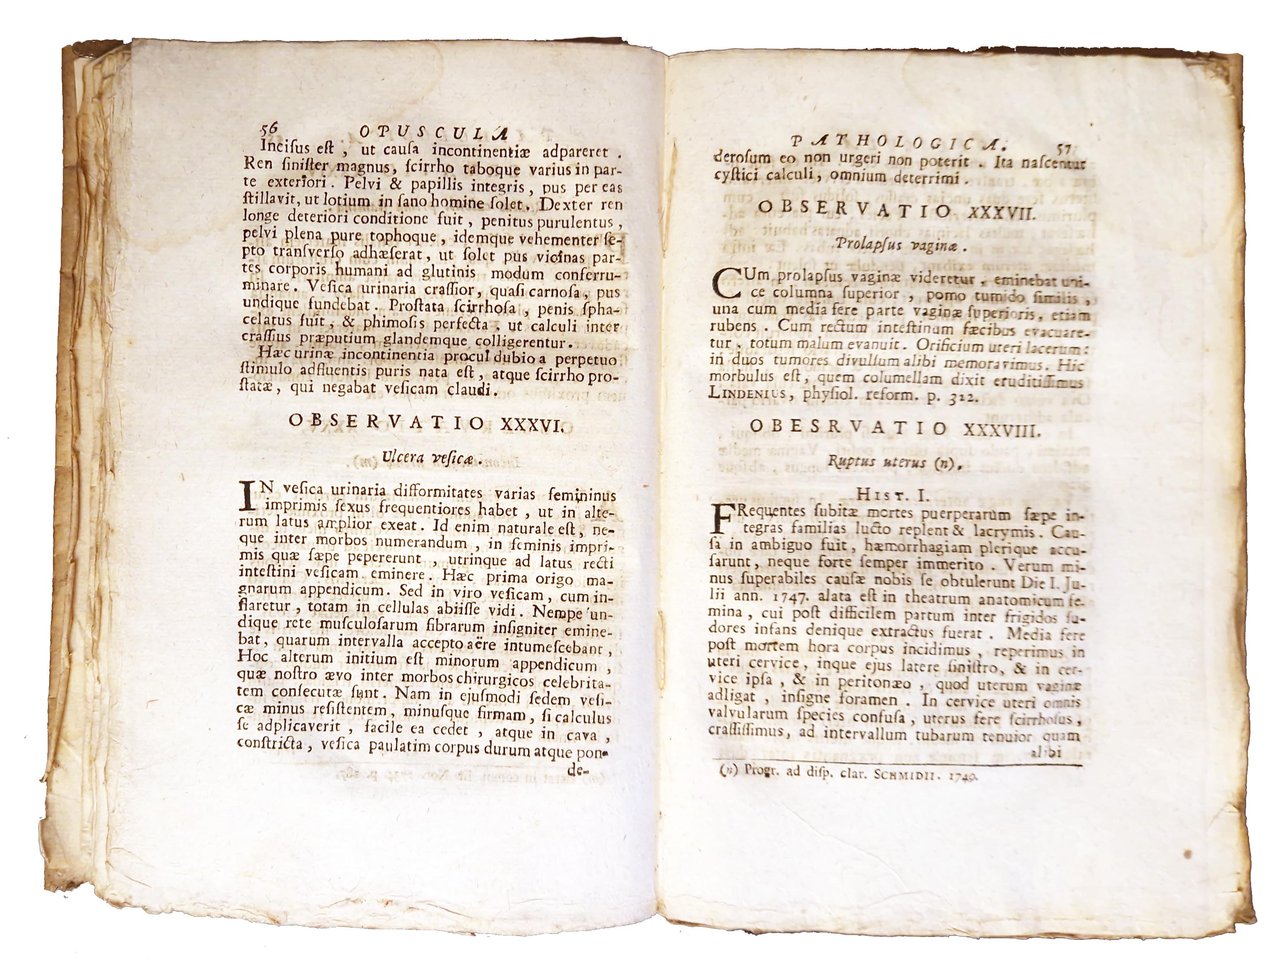 56 OPUSCULA
Incisus est , ut causa incontinentiæ adpareret .
Ren sinister magnus, scirrho taboque varius in par-
te exteriori . Pelvi & papillis integris , pus per eas
stillavit, ut lotium in sano homine solet . Dexter ren
longe deteriori conditione fuit , penitus purulentus ,
pelvi plena pure tophoque , idemque vehementer se-
pto transverso adhæserat , ut solet pus vicinas par-
tes corporis humani ad glutinis modum conferru-
minare . Vesica urinaria crassior, quasi carnosa , pus
undique fundebat . Prostata scirrhosa , penis spha-
celatus fuit , & phimosis perfecta . ut calculi inter
crassius præputium glandemque colligerentur .
Hæc urinæ incontinentia procul dubio a perpetuo
stimulo adfluentis puris nata est , atque scirrho pro-
statæ , qui negabat vesicam claudi .
OBSERVATIO XXXVI.
Ulcera vesicæ .
IN vesica urinaria difformitates varias femininus
imprimis sexus frequentiores habet , ut in alte-
rum latus amplior exeat . Id enim naturale est , ne-
que inter morbos numerandum , in feminis impri-
mis quæ sæpe pepererunt , utrinque ad latus recti
intestini vesicam eminere . Hæc prima origo ma-
gnarum appendicum . Sed in viro vesicam , cum in-
flaretur , totam in cellulas abiisse vidi . Nempe un-
dique rete musculosarum fibrarum insigniter emine-
bat , quarum intervalla accepto aëre intumescebant ,
Hoc alterum initium est minorum appendicum ,
quæ nostro ævo inter morbos chirurgicos celebrita-
tem consecutæ sunt . Nam in ejusmodi sedem vesi-
cæ minus resistentem , minusque firmam , si calculus
se adplicaverit , facile ea cedet , atque in cava ,
constricta , vesica paulatim corpus durum atque pon-
de-
PATHOLOGICA. 57
derosum eo non urgeri non poterit . Ita nascentur
cystici calculi , omnium deterrimi .
OBSERVATIO XXXVII.
Prolapsus vaginæ .
CUm prolapsus vaginæ videretur , eminebat uni-
ce columna superior , pomo tumido similis ,
una cum media fere parte vaginæ superioris, etiam
rubens . Cum rectum intestinum fæcibus evacuare-
tur . totum malum evanuit . Orificium uteri lacerum :
in duos tumores divulsum alibi memoravimus . Hic
morbulus est , quem columellam dixit eruditissimus
LINDENIUS, physiol. reform. p. 322.
OBESRVATIO XXXVIII.
Ruptus uterus (n).
HIST. I.
FRequentes subitæ mortes puerperarum sæpe in-
tegras familias luctu replent & lacrymis . Cau-
sa in ambiguo fuit , hæmorrhagiam plerique accu-
sarunt , neque forte semper immerito . Verum mi-
nus superabiles causæ nobis se obtulerunt Die I. Ju-
lii ann. 1747. alata est in theatrum anatomicum fe-
mina , cui post difficilem partum inter frigidos su-
dores infans denique extractus fuerat . Media fere
post mortem hora corpus incidimus , reperimus in
uteri cervice , inque ejus latere sinistro, & in cer-
vice ipsa , & in peritonæo , quod uterum vaginæ
adligat , insigne foramen . In cervice uteri omnis
valvularum species confusa , uterus fere scirrhosus ,
crassissimus, ad intervallum tubarum tenuior quam
alibi
(n) Progr. ad disp. clar. SCHMIDII. 1749.